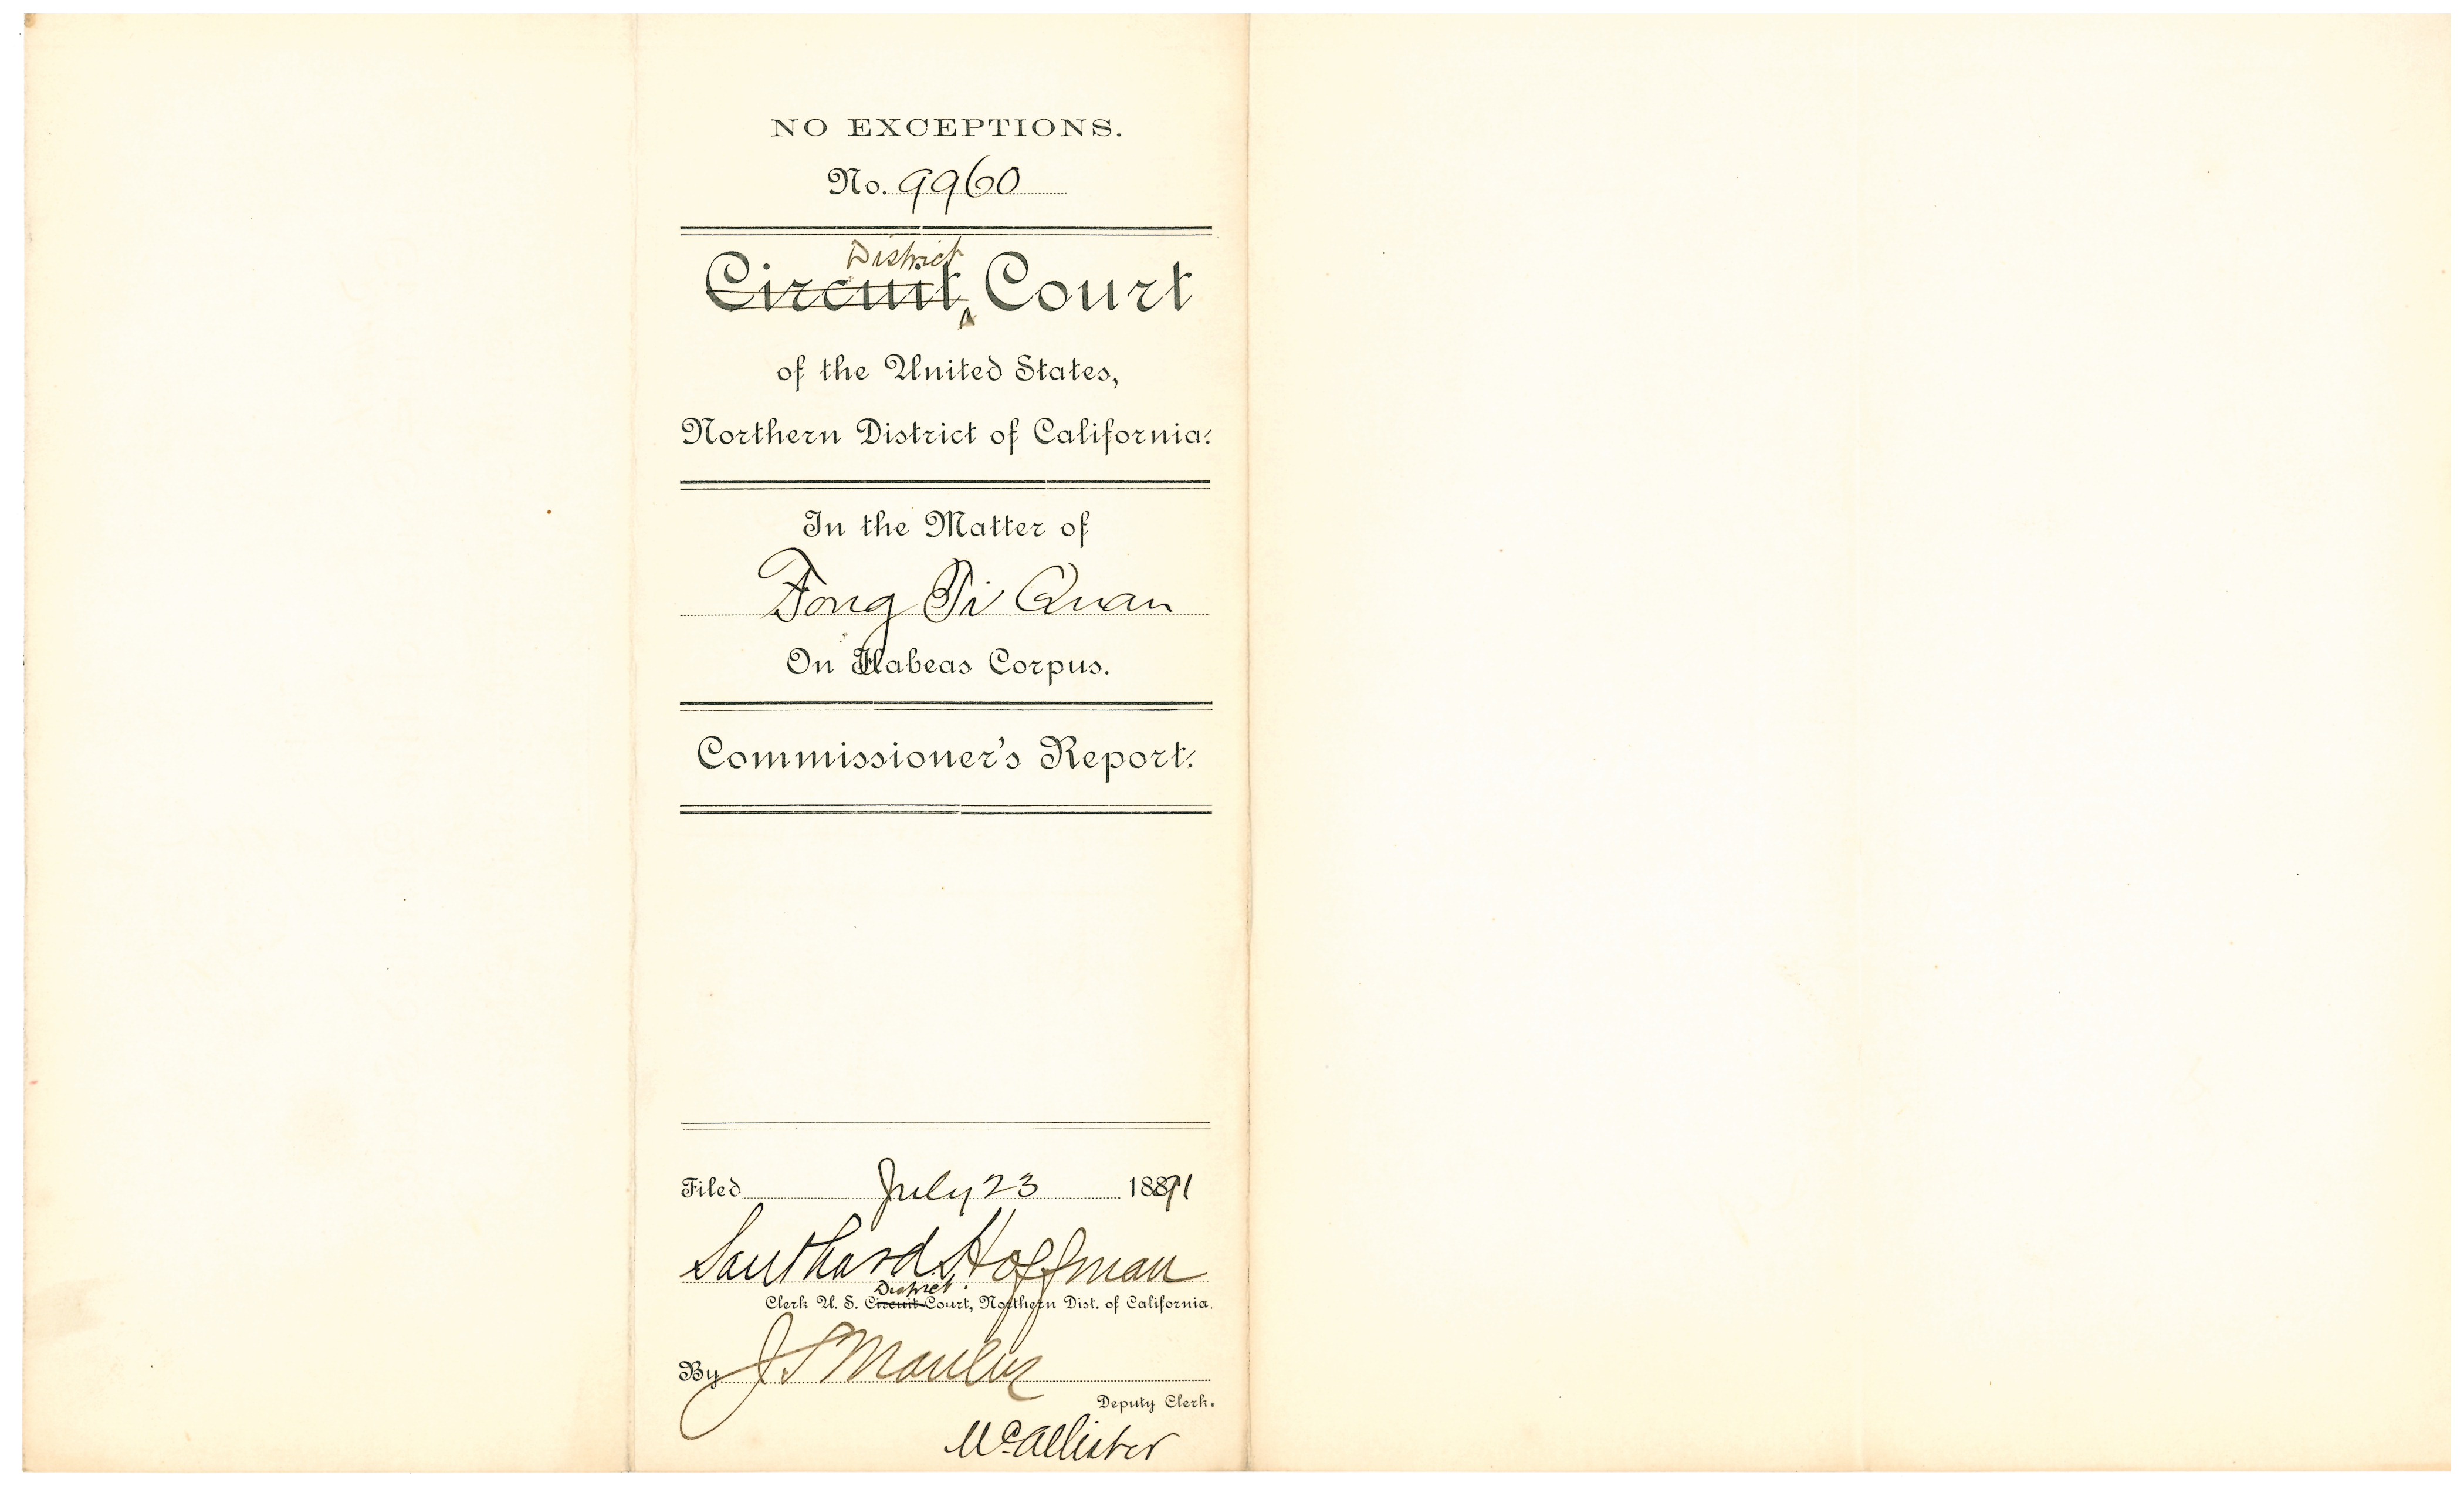 NO EXCEPTIONS.
No. 9960
District
Circuit Court
of the United States,
Northern District of California.
In the Matter of
Fong Ti Quan
On Habeas Corpus.
Commissioner's Report.
Filed July 23 1891
Southard Hoffman
District
Clerk U. S. Circuit Court, Northern Dist. of California.
By J S Manley
Deputy Clerk.
McAllister